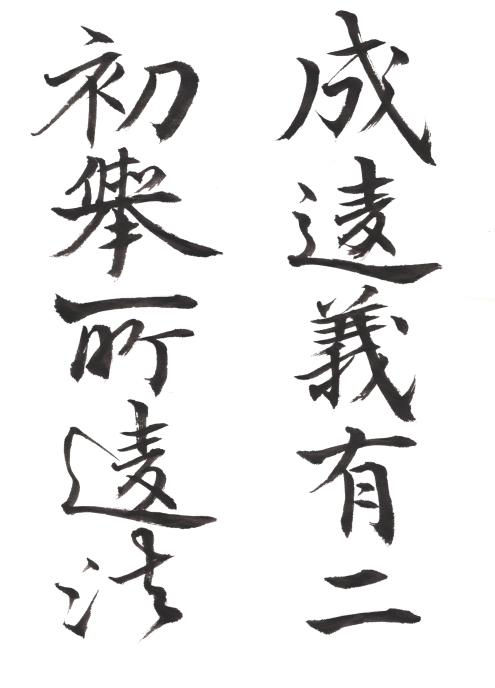 成遠義有二
初舉所遠法